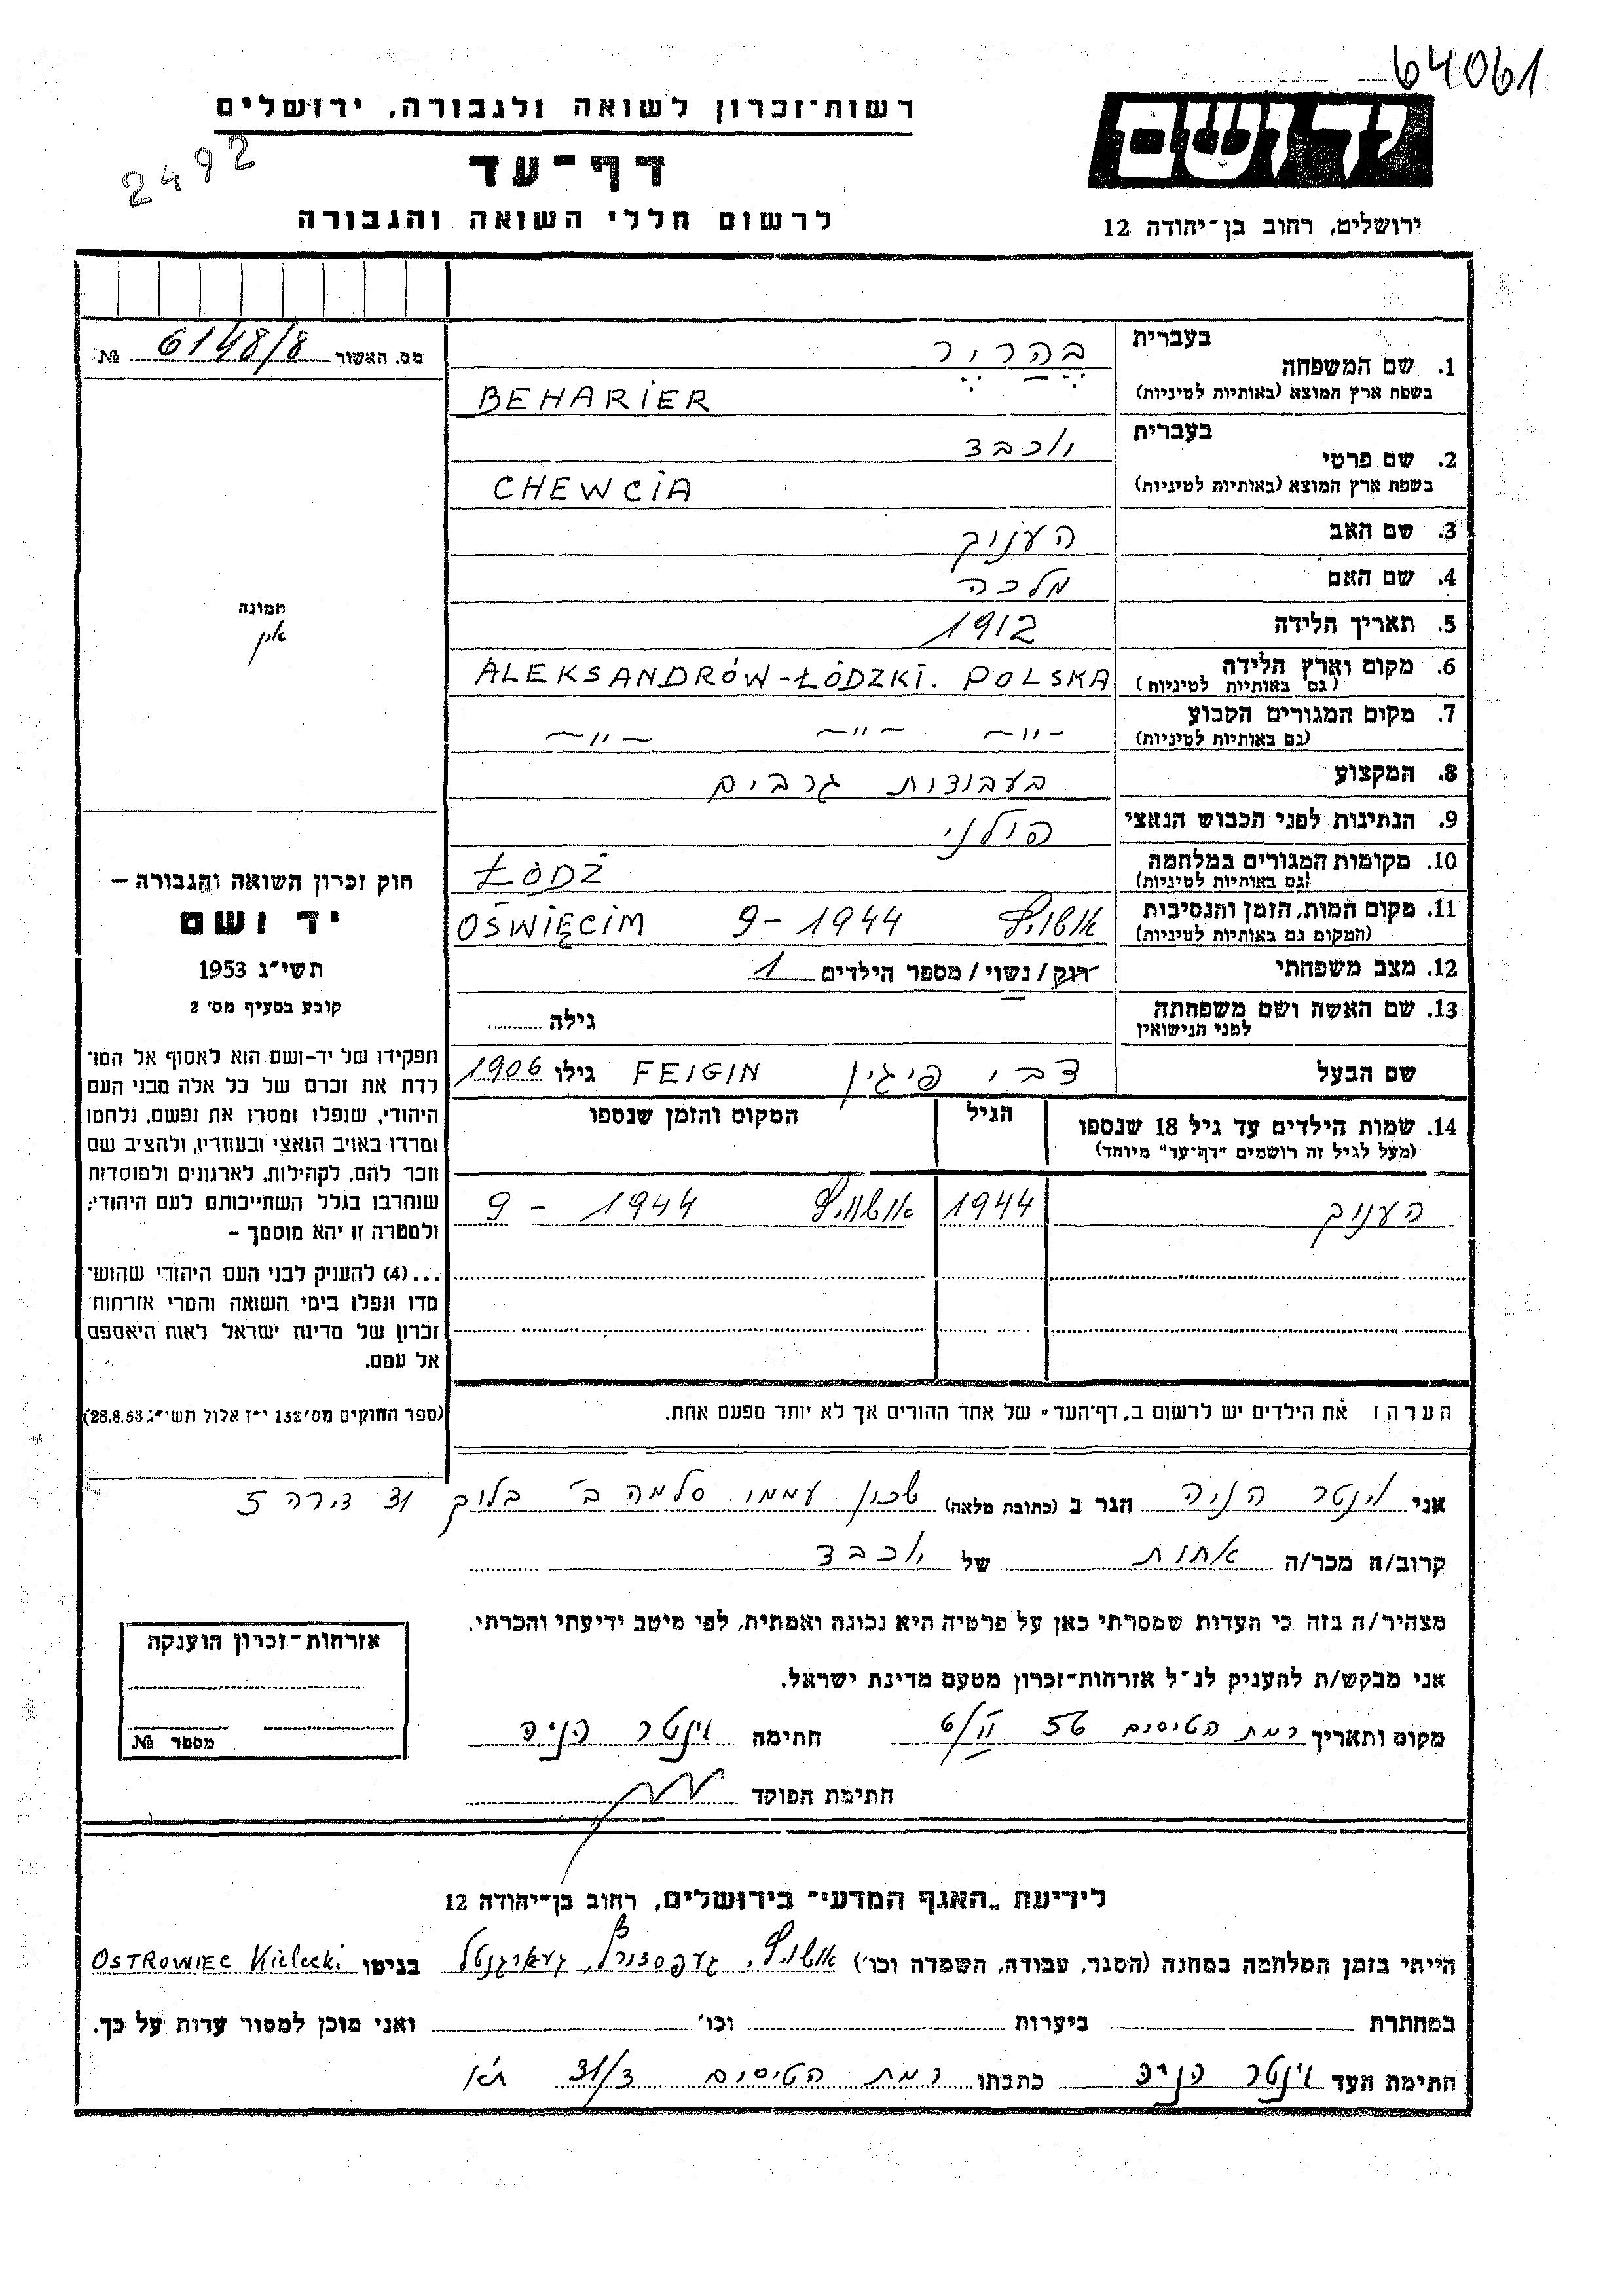 64061
רשות-זכרון לשואה ולגבורה, ירושלים
דף-עד
לרשום חללי השואה והגבורה
2492
ידושם
ירושלים, רחוב בן-יהודה 12
מס. האשור 6148/8 №
תמונה
אין
חוק זכרון השואה והגבורה –
יד ושם
תשי"ג 1953
קובע בסעיף מס' 2
תפקידו של יד-ושם הוא לאסוף אל המו־
לדת את זכרם של כל אלה מבני העם
היהודי, שנפלו ומסרו את נפשם, נלחמו
ומרדו באויב הנאצי ובעוזריו, ולהציב שם
וזכר להם, לקהילות, לארגונים ולמוסדות
שנחרבו בגלל השתייכותם לעם היהודי;
ולמטרה זו יהא מוסמך –
...(4) להעניק לבני העם היהודי שהוש־
מדו ונפלו בימי השואה והמרי אזרחות
זכרון של מדינת ישראל לאות היאספם
אל עמם.
(ספר החוקים מס' 132 י"ז אלול תשי"ג 28.8.53)
בעברית
1. שם המשפחה בהריר
בשפת ארץ המוצא (באותיות לטיניות) BEHARIER
בעברית
2. שם פרטי יוכבד
בשפת ארץ המוצא (באותיות לטיניות) CHEWCIA
3. שם האב הענוך
4. שם האם מלכה
5. תאריך הלידה 1912
6. מקום וארץ הלידה ALEKSANDRÓW-ŁÓDZKI. POLSKA
(גם באותיות לטיניות)
7. מקום המגורים הקבוע –"– –"– –"–
(גם באותיות לטיניות)
8. המקצוע בעבודות גרבים
9. הנתינות לפני הכבוש הנאצי פולני
10. מקומות המגורים במלחמה ŁÓDŹ
(גם באותיות לטיניות)
11. מקום המות, הזמן והנסיבות אושויץ 1944 - 9 OŚWIĘCIM
(המקום גם באותיות לטיניות)
12. מצב משפחתי רוק/נשוי/מספר הילדים 1
13. שם האשה ושם משפחתה
לפני הנישואין גילה
שם הבעל צבי פיגין FEIGIN גילו 1906
14. שמות הילדים עד גיל 18 שנספו הגיל המקום והזמן שנספו
(מעל לגיל זה רושמים "דף-עד" מיוחד)
הענוך 1944 אושויץ 1944 - 9
הערה: את הילדים יש לרשום ב"דף-העד" של אחד ההורים אך לא יותר מפעם אחת.
אני וינטר הניה הגר ב (כתובת מלאה) שכון עממי סלמה ב' בלוק 31 דירה 5
קרוב/ה מכר/ה אחות של יוכבד
מצהיר/ה בזה כי העדות שמסרתי כאן על פרטיה היא נכונה ואמתית, לפי מיטב ידיעתי והכרתי.
אני מבקש/ת להעניק לנ"ל אזרחות-זכרון מטעם מדינת ישראל.
מקום ותאריך רמת הטיסים 56 6/II חתימה וינטר הניה
חתימת הפוקד
אזרחות-זכרון הוענקה
מספר №
לידיעת "האגף המדעי" בירושלים, רחוב בן-יהודה 12
הייתי בזמן המלחמה במחנה (הסגר, עבודה, השמדה וכו') אושויץ, בניטו OSTROWIEC Kielecki
במחתרת ביערות וכו' ואני מוכן למסור עדות על כך.
חתימת העד וינטר הניה כתבתו רמת הטיסים 31/3 ת"א